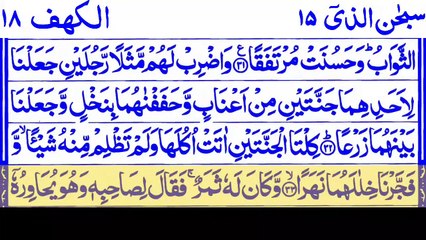 سبحٰن الذیٓ ١٥ الكهف ١٨
الثَّوَابُ ؕ وَحَسُنَتْ مُرْتَفَقًا ﴿٣١﴾ وَاضْرِبْ لَهُمْ مَّثَلًا رَّجُلَيْنِ جَعَلْنَا
لِاَحَدِهِمَا جَنَّتَيْنِ مِنْ اَعْنَابٍ وَّحَفَفْنٰهُمَا بِنَخْلٍ وَّجَعَلْنَا
بَيْنَهُمَا زَرْعًا ﴿٣٢﴾ كِلْتَا الْجَنَّتَيْنِ اٰتَتْ اُكُلَهَا وَلَمْ تَظْلِمْ مِّنْهُ شَيْـًٔا ۙ وَّ
فَجَّرْنَا خِلٰلَهُمَا نَهَرًا ﴿٣٣﴾ وَّكَانَ لَهٗ ثَمَرٌ ۚ فَقَالَ لِصَاحِبِهٖ وَهُوَ يُحَاوِرُهٗٓ